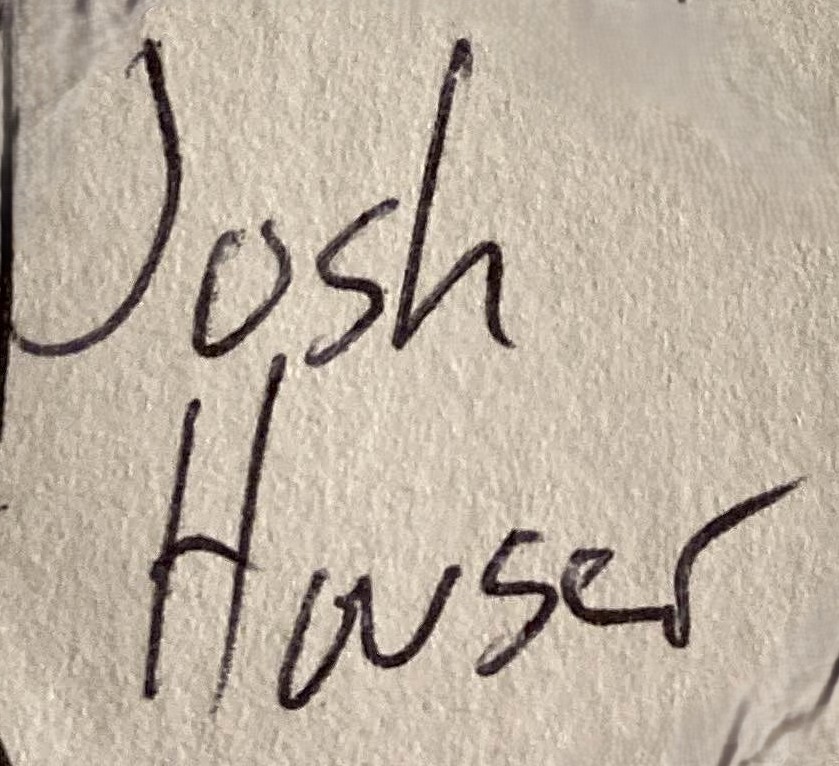 Josh
Houser